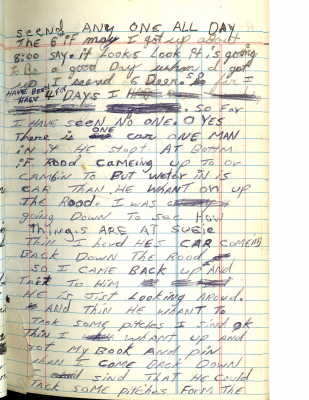 seend ANY ONE ALL DAY
The 6 if may I got up about
8:00 SAY. it Looks Look it,s going
To Be a good Day when I got
up I seend 6 Deer. so far I
HAVE BEEN
DAYS I
. So Far
I HAVE seeN NO ONE. O YES
There is ONE car ONE MAN
iN it He stopt AT Bottm
if Rood cameing up To or
cambin To BUT Water iN is
CAR THAN HE WHANT ON up
The Rood. I was
going DOWN To see How
Things ARE AT Susie
Thin I herd HES CAR comeing
BACK DowN The Rood
So I CAME BACK up AND
Talk To Him
HE is Jist Looking Aroud.
AND THiN HE WHANT To
Tack some pitches I sind ok
Thin I whant up and
got My Book AND piN
whan I come Back Down
I sind THAT He Could
Tack some pitches Form THE